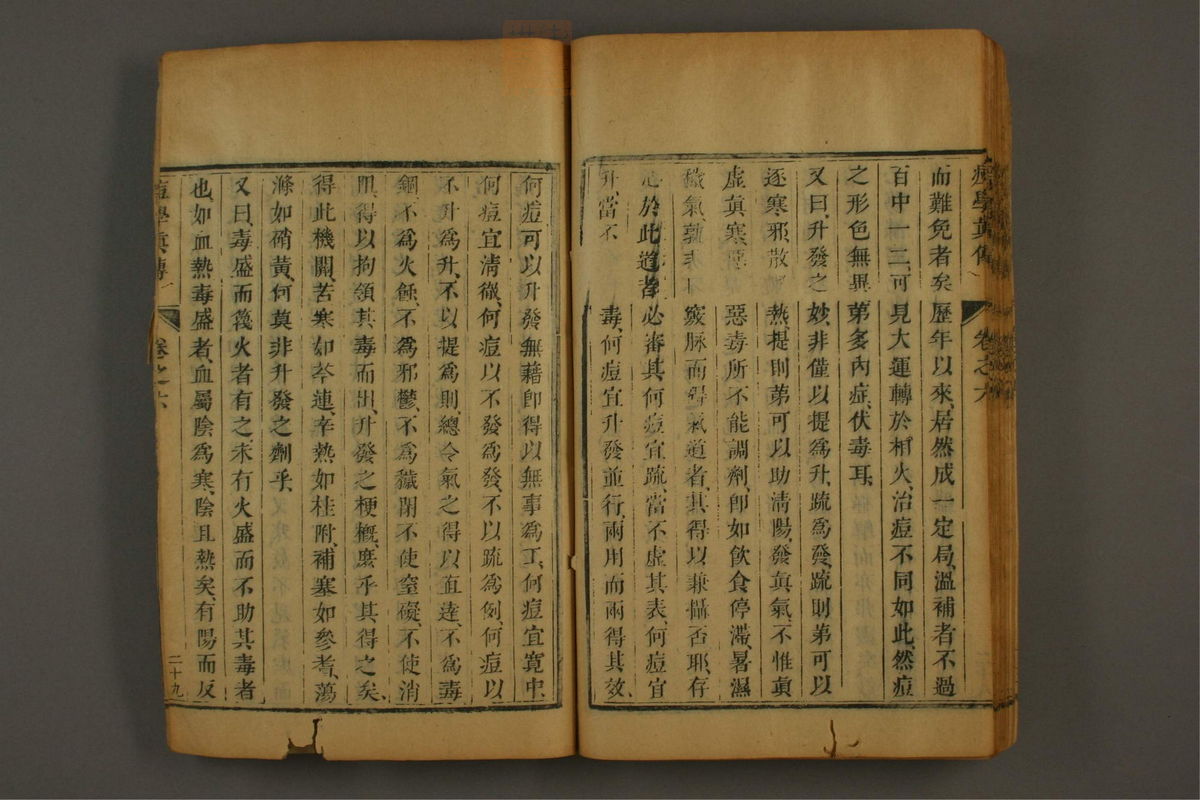 痘學真傳 卷之六
而難免者矣歷年以來、居然成一定局、溫補者不過
百中一二、可見大運轉於相火、治痘不同如此、然痘
之形色無異、第多內症、伏毒耳、
又曰、升發之妙、非僅以提爲升、疏爲發、疏則第可以
逐寒邪、散熱、提則第可以助淸陽、發眞氣、不惟眞
虛眞寒、惡惡毒所不能調劑、卽如飮食停滯、暑濕
穢氣、竅脉而得氣道者、其得以兼攝否耶、存
心於此道者、必審其何痘宜疏、當不虛其表、何痘宜
升、當不毒、何痘宜升發並行、兩用而兩得其效、
何痘可以升發無藉、卽得以無事爲工、何痘宜寬中、
何痘宜淸微、何痘以不發爲發、不以疏爲例、何痘以
不升爲升、不以提爲則、總令氣之得以直達、不爲毒
錮、不爲火蝕、不爲邪鬱、不爲穢閉、不使窒礙、不使消
阻、得以拘領其毒而出、升發之梗槪、庶乎其得之矣、
得此機關、苦寒如芩連、辛熱如桂附、補塞如參耆、蕩
滌如硝黃、何莫非升發之劑乎、
又曰、毒盛而發火者有之、未有火盛而不助其毒者
也、如血熱毒盛者、血屬陰爲寒、陰且熱矣、有陽而反
痘學眞傳 卷之六 二十九